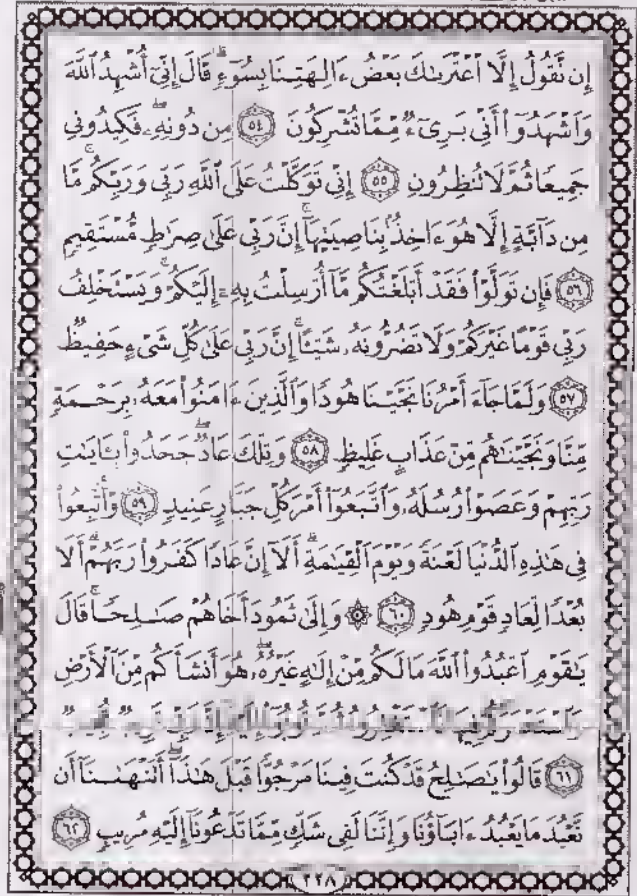 إِن نَّقُولُ إِلَّا ٱعْتَرَىٰكَ بَعْضُ ءَالِهَتِنَا بِسُوٓءٍۗ قَالَ إِنِّىٓ أُشْهِدُ ٱللَّهَ
وَٱشْهَدُوٓا۟ أَنِّى بَرِىٓءٌ مِّمَّا تُشْرِكُونَ ٥٤ مِن دُونِهِۦۖ فَكِيدُونِى
جَمِيعًا ثُمَّ لَا تُنظِرُونِ ٥٥ إِنِّى تَوَكَّلْتُ عَلَى ٱللَّهِ رَبِّى وَرَبِّكُمۚ مَّا
مِن دَآبَّةٍ إِلَّا هُوَ ءَاخِذٌۢ بِنَاصِيَتِهَآۚ إِنَّ رَبِّى عَلَىٰ صِرَٰطٍ مُّسْتَقِيمٍ
٥٦ فَإِن تَوَلَّوْا۟ فَقَدْ أَبْلَغْتُكُم مَّآ أُرْسِلْتُ بِهِۦٓ إِلَيْكُمْۚ وَيَسْتَخْلِفُ
رَبِّى قَوْمًا غَيْرَكُمْ وَلَا تَضُرُّونَهُۥ شَيْـًٔاۚ إِنَّ رَبِّى عَلَىٰ كُلِّ شَىْءٍ حَفِيظٌ
٥٧ وَلَمَّا جَآءَ أَمْرُنَا نَجَّيْنَا هُودًا وَٱلَّذِينَ ءَامَنُوا۟ مَعَهُۥ بِرَحْمَةٍ
مِّنَّا وَنَجَّيْنَٰهُم مِّنْ عَذَابٍ غَلِيظٍ ٥٨ وَتِلْكَ عَادٌۖ جَحَدُوا۟ بِـَٔايَٰتِ
رَبِّهِمْ وَعَصَوْا۟ رُسُلَهُۥ وَٱتَّبَعُوٓا۟ أَمْرَ كُلِّ جَبَّارٍ عَنِيدٍ ٥٩ وَأُتْبِعُوا۟
فِى هَٰذِهِ ٱلدُّنْيَا لَعْنَةً وَيَوْمَ ٱلْقِيَٰمَةِۗ أَلَآ إِنَّ عَادًا كَفَرُوا۟ رَبَّهُمْۗ أَلَا
بُعْدًا لِّعَادٍ قَوْمِ هُودٍ ٦٠ ۞ وَإِلَىٰ ثَمُودَ أَخَاهُمْ صَٰلِحًاۚ قَالَ
يَٰقَوْمِ ٱعْبُدُوا۟ ٱللَّهَ مَا لَكُم مِّنْ إِلَٰهٍ غَيْرُهُۥۖ هُوَ أَنشَأَكُم مِّنَ ٱلْأَرْضِ
٦١ قَالُوا۟ يَٰصَٰلِحُ قَدْ كُنتَ فِينَا مَرْجُوًّا قَبْلَ هَٰذَآۖ أَتَنْهَىٰنَآ أَن
نَّعْبُدَ مَا يَعْبُدُ ءَابَآؤُنَا وَإِنَّنَا لَفِى شَكٍّ مِّمَّا تَدْعُونَآ إِلَيْهِ مُرِيبٍ ٦٢
٢٢٨